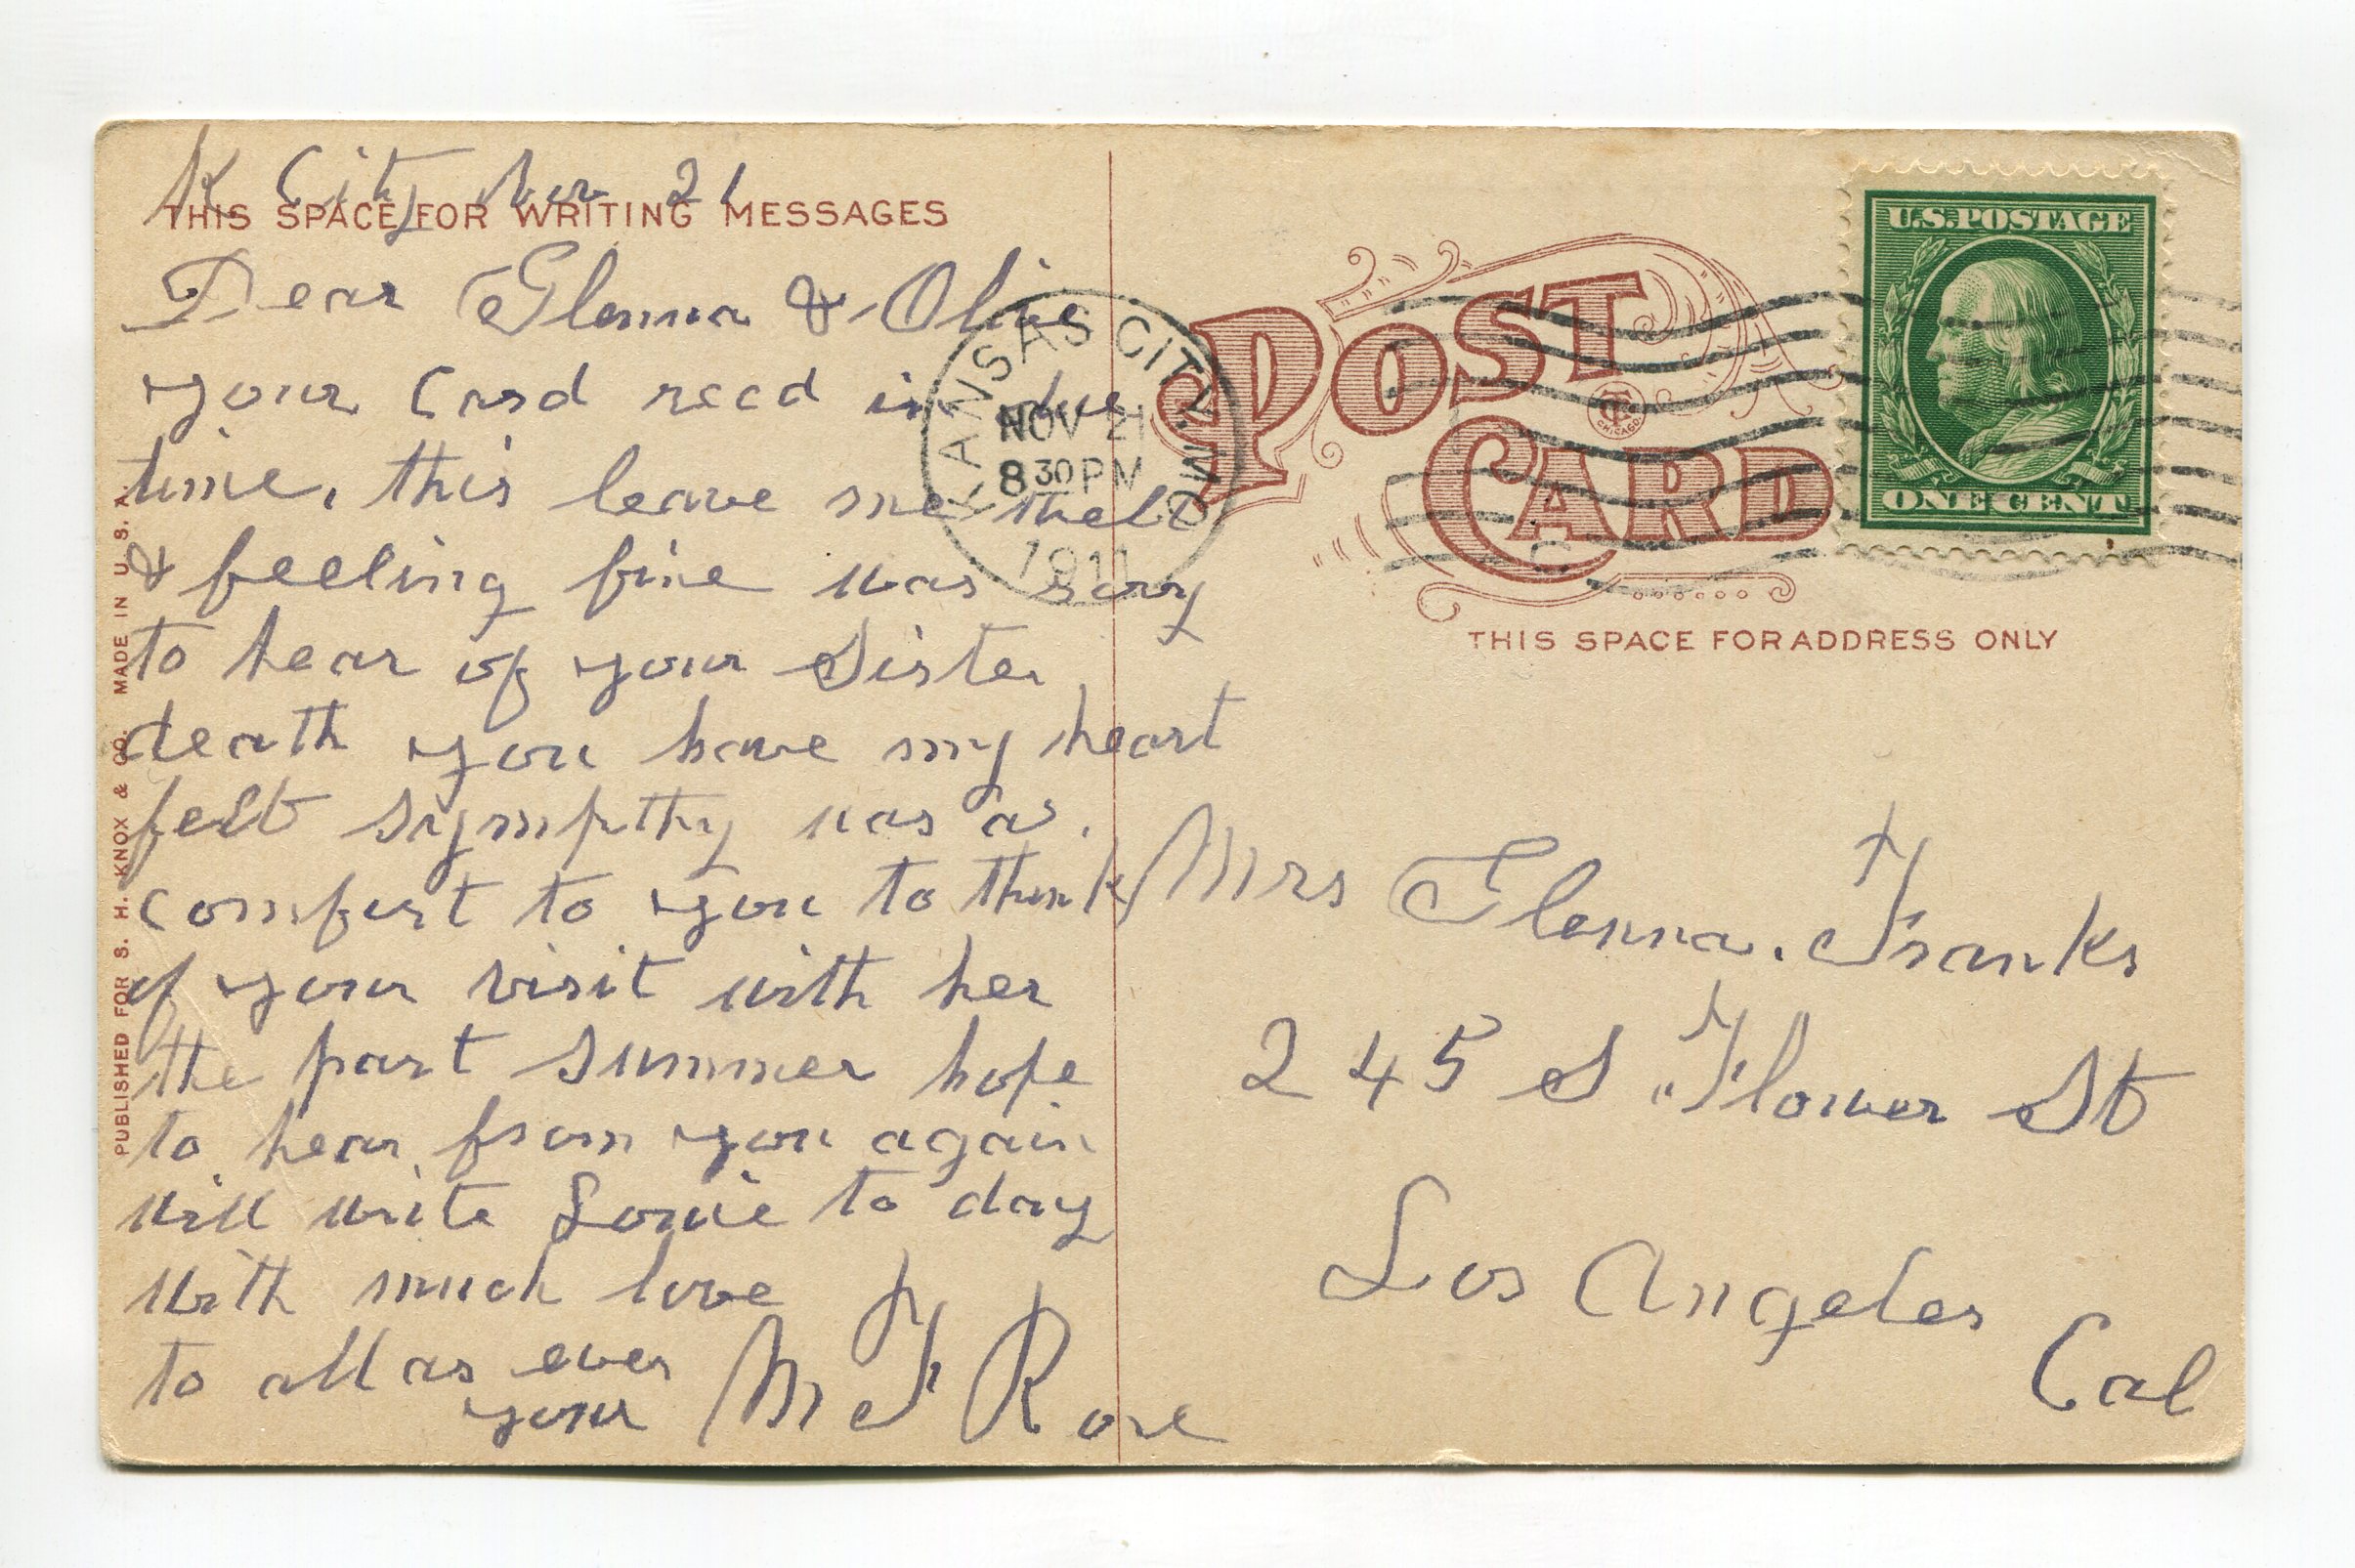 K City Nov 21
THIS SPACE FOR WRITING MESSAGES
Dear Glenna & Olive
your Card recd in due
time, this leave me well
& feeling fine was sory
to hear of your Sister
death you have my heart
felt sympthy was a
comfort to you to think
of your visit with her
the past summer hope
to hear from you again
will write Louie to day
with much love
to all as ever
your M F Rose
PUBLISHED FOR S. H. KNOX & CO. MADE IN U. S. A.
KANSAS CITY, MO
NOV 21
8 30 PM
1911
POST
CARD
CHICAGO
U.S. POSTAGE
ONE CENT
THIS SPACE FOR ADDRESS ONLY
Mrs Glenna. Franks
245 S Flower St
Los Angeles
Cal